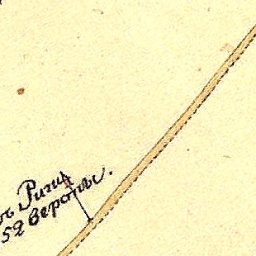 ъ Риги
52 версты.